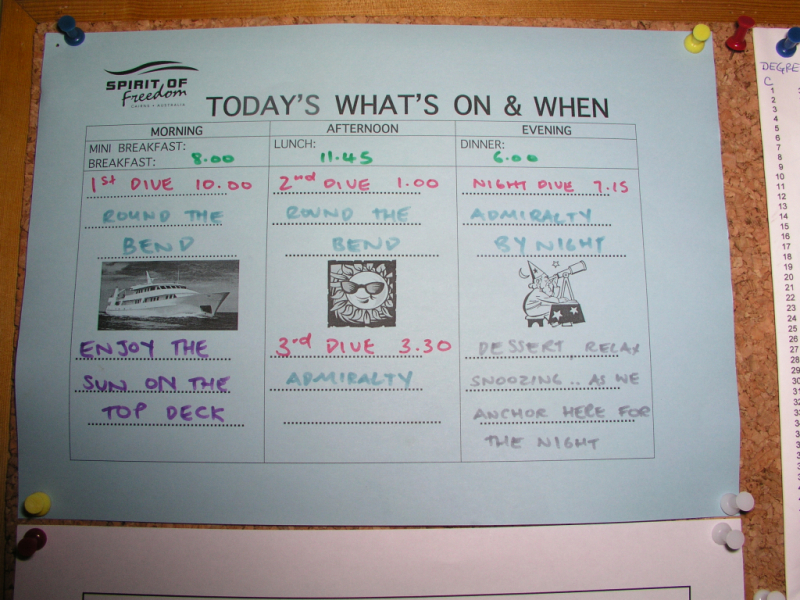 SPIRIT OF
Freedom
CAIRNS • AUSTRALIA
TODAY'S WHAT'S ON & WHEN
MORNING
MINI BREAKFAST:
BREAKFAST: 8.00
1st DIVE 10.00
ROUND THE
BEND
ENJOY THE
SUN ON THE
TOP DECK
AFTERNOON
LUNCH:
11.45
2nd DIVE 1.00
ROUND THE
BEND
3rd DIVE 3.30
ADMIRALTY
EVENING
DINNER:
6.00
NIGHT DIVE 7.15
ADMIRALTY
BY NIGHT
DESSERT, RELAX
SNOOZING .. AS WE
ANCHOR HERE FOR
THE NIGHT
C
1
2
3
4
5
6
7
8
9
10
11
12
13
14
15
16
17
18
19
20
21
22
23
24
25
26
27
28
29
30